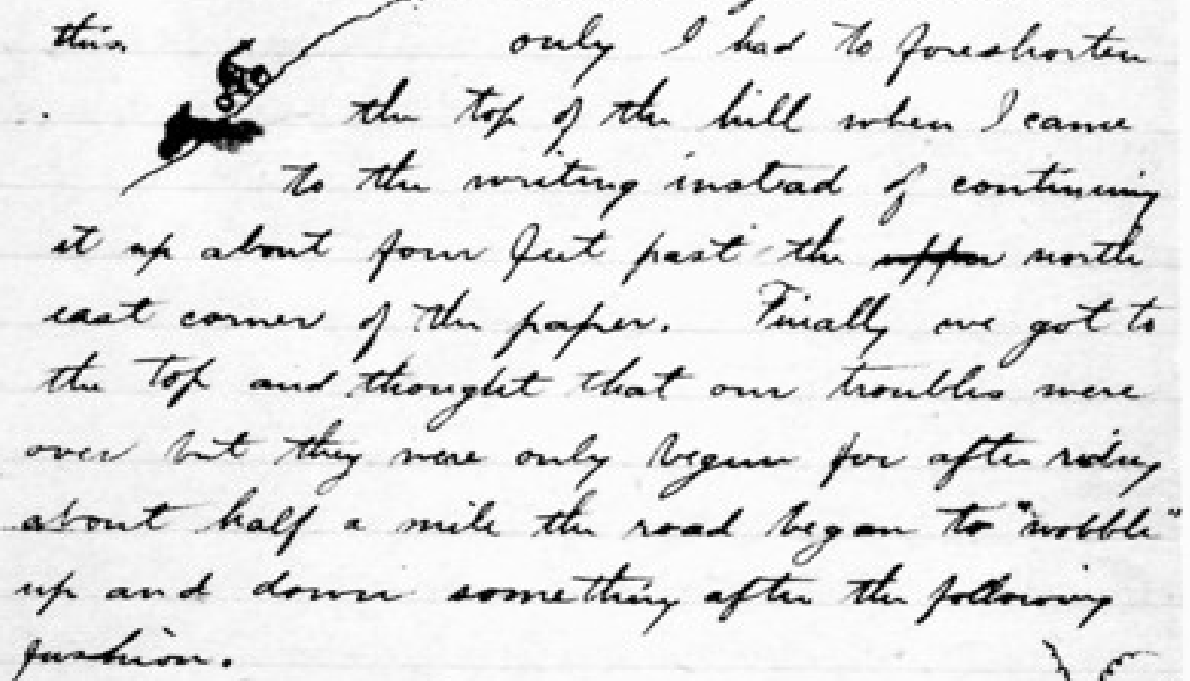 this only I had to foreshorten
the top of the hill when I came
to the writing instead of continuing
it up about four feet past the upper north
east corner of the paper. Finally we got to
the top and thought that our troubles were
over but they were only begun for after riding
about half a mile the road began to "wobble"
up and down something after the following
fashion.